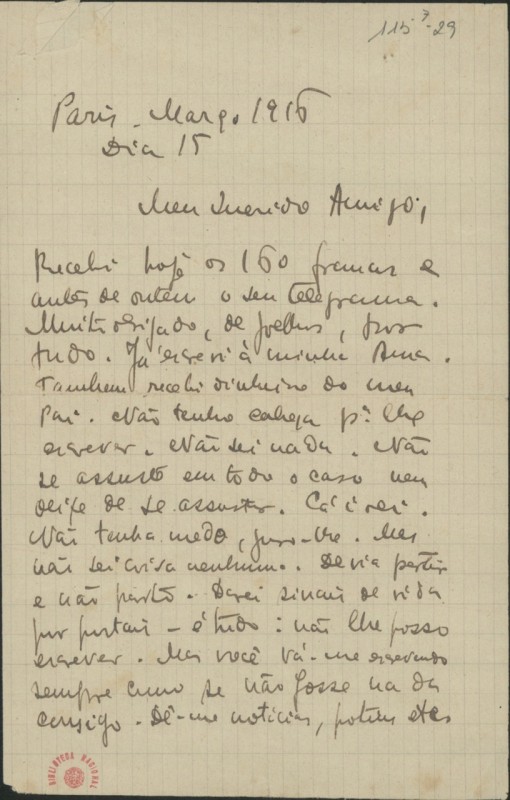 115⁷-29
Paris - Março 1916
Dia 15
Meu Querido Amigo,
Recebi hoje os 160 francos e
antes de ontem o seu telegrama.
Muito obrigado, de joelhos, por
tudo. Já escrevi à minha Ama.
Tambem recebi dinheiro do meu
Pai. Não tenho cabeça p.ª lhe
escrever. Não sei nada. Não
se assuste em todo o caso nem
deixe de se assustar. Cá irei.
Não tenha medo, juro-lhe. Mas
não sei coisa nenhuma. Devia partir
e não parto. Darei sinais de vida
por postais - é tudo: não lhe posso
escrever. Mas você vá-me escrevendo
sempre como se não fosse nada
consigo. Dê-me noticias,
BIBLIOTECA NACIONAL